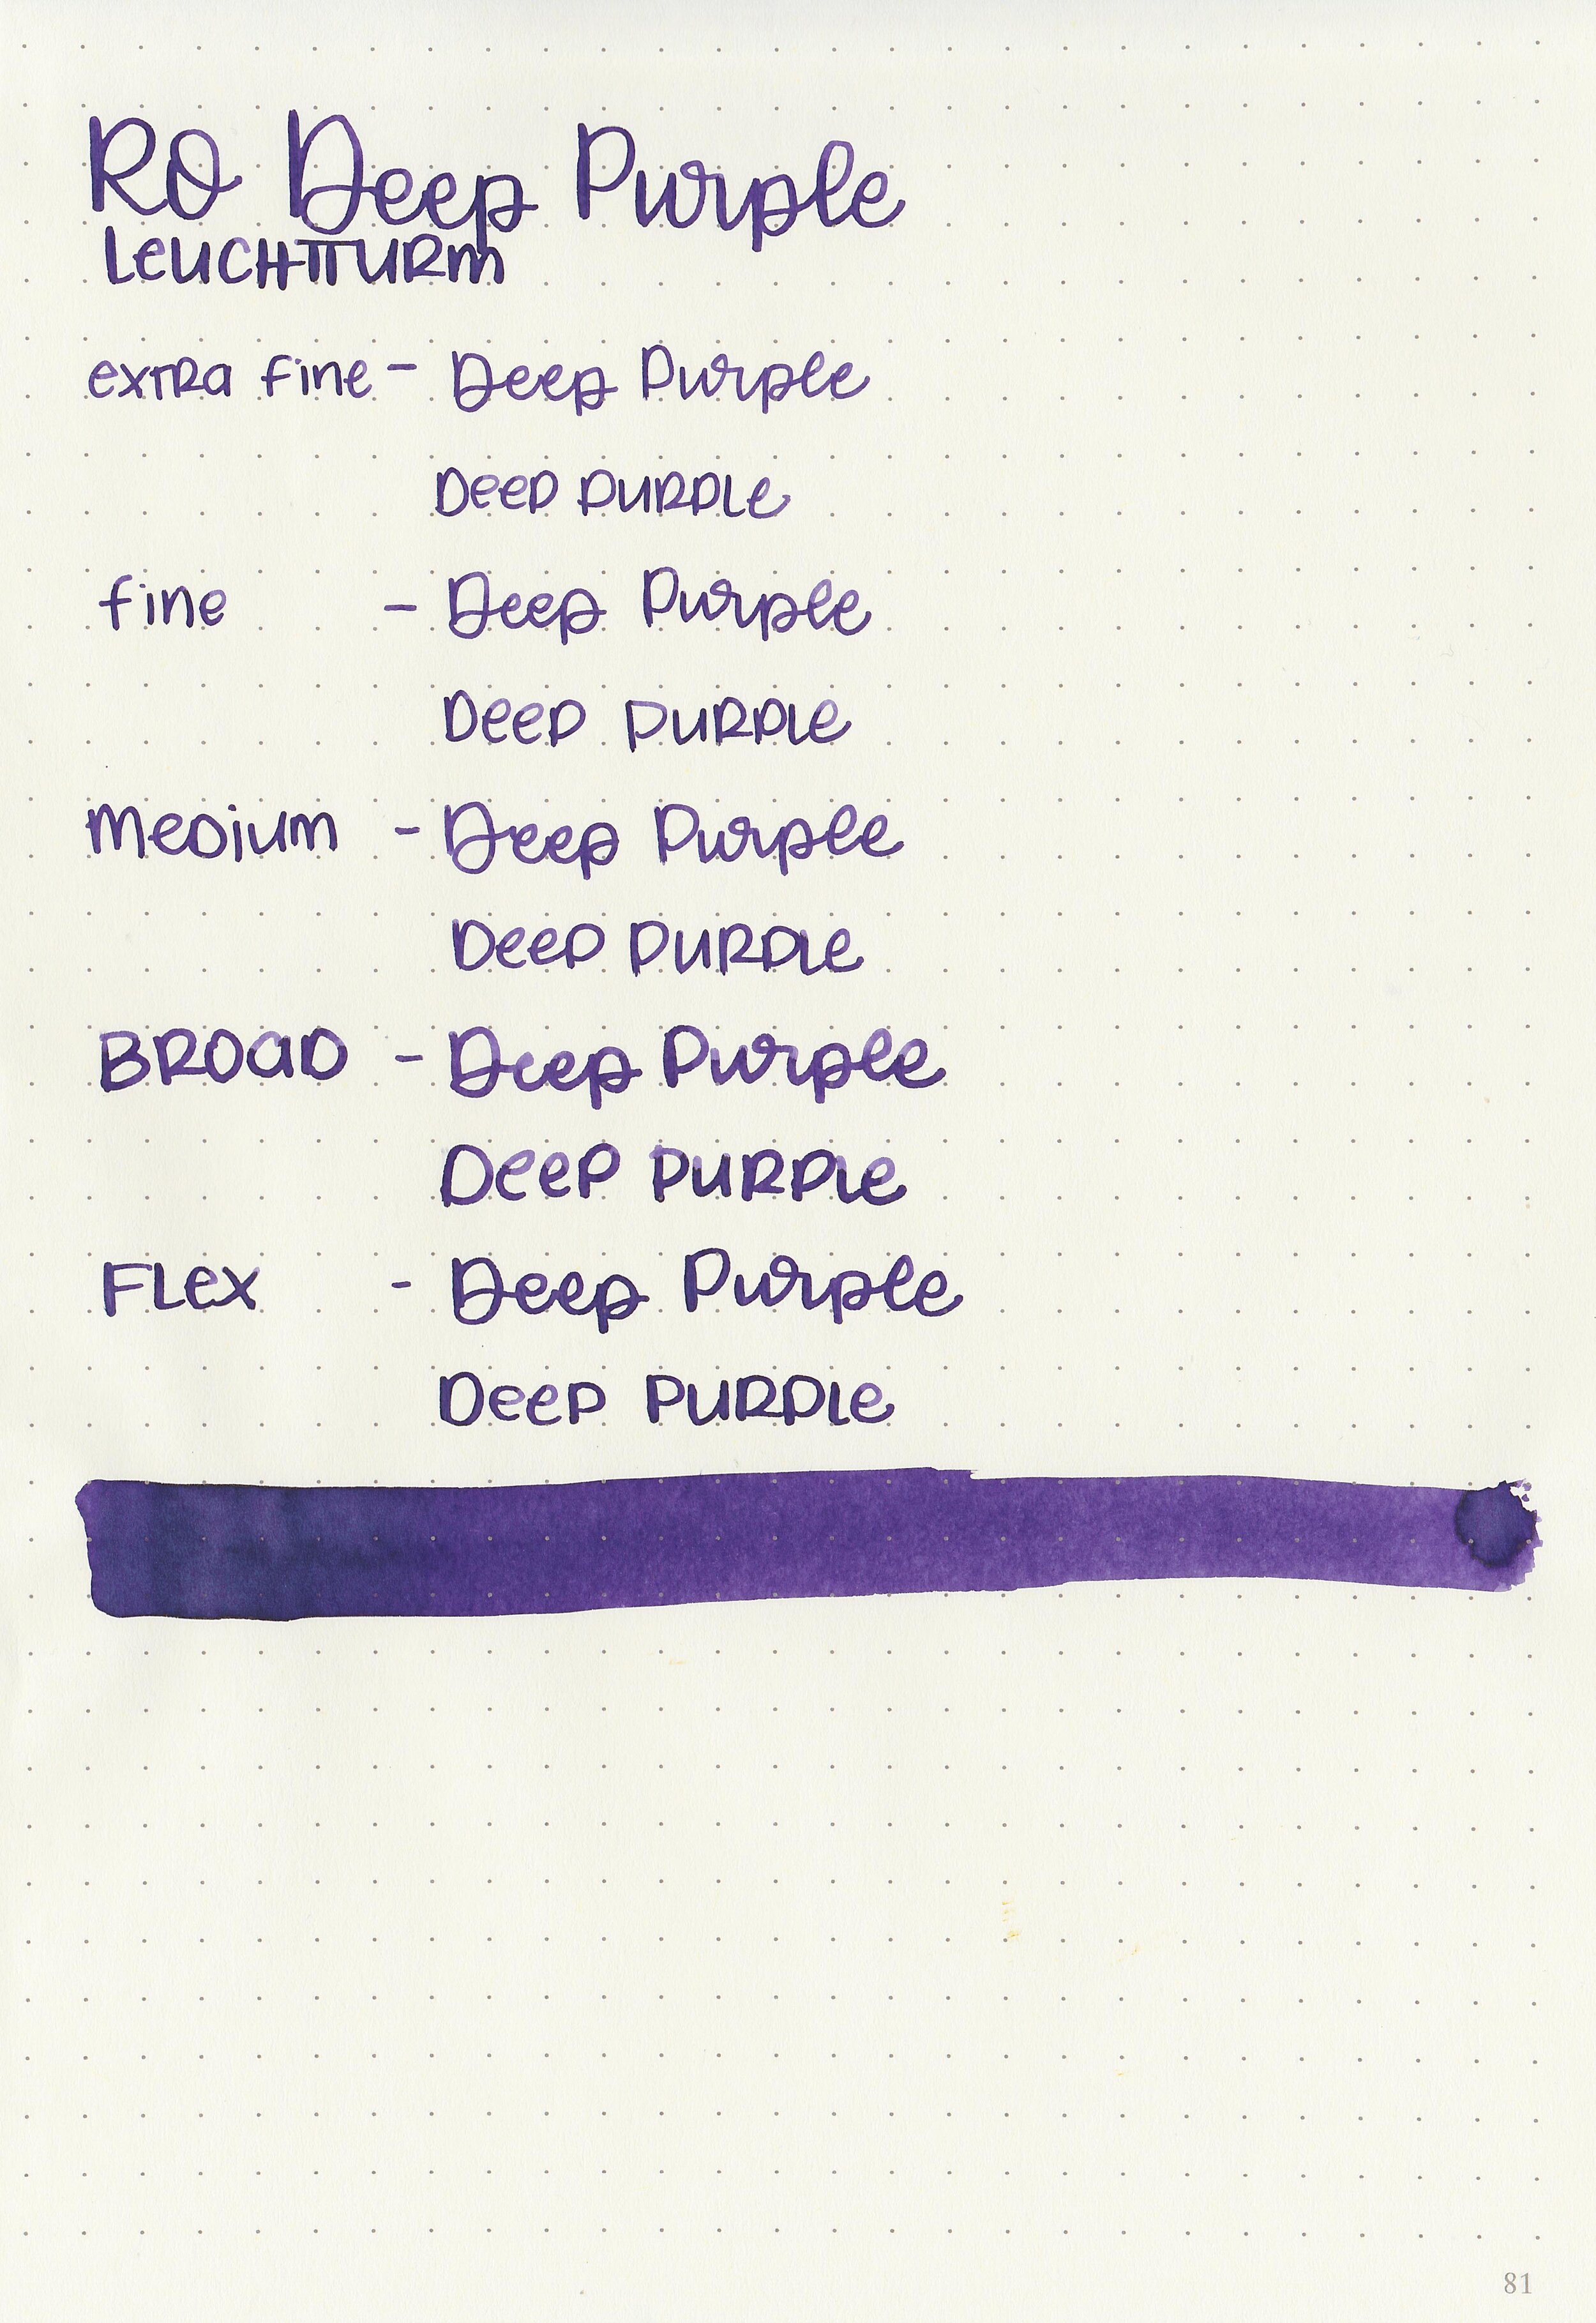 RO Deep Purple
Leuchtturm
extra fine - Deep Purple
Deep Purple
fine - Deep Purple
Deep Purple
Medium - Deep Purple
Deep Purple
Broad - Deep Purple
Deep Purple
Flex - Deep Purple
Deep Purple
81